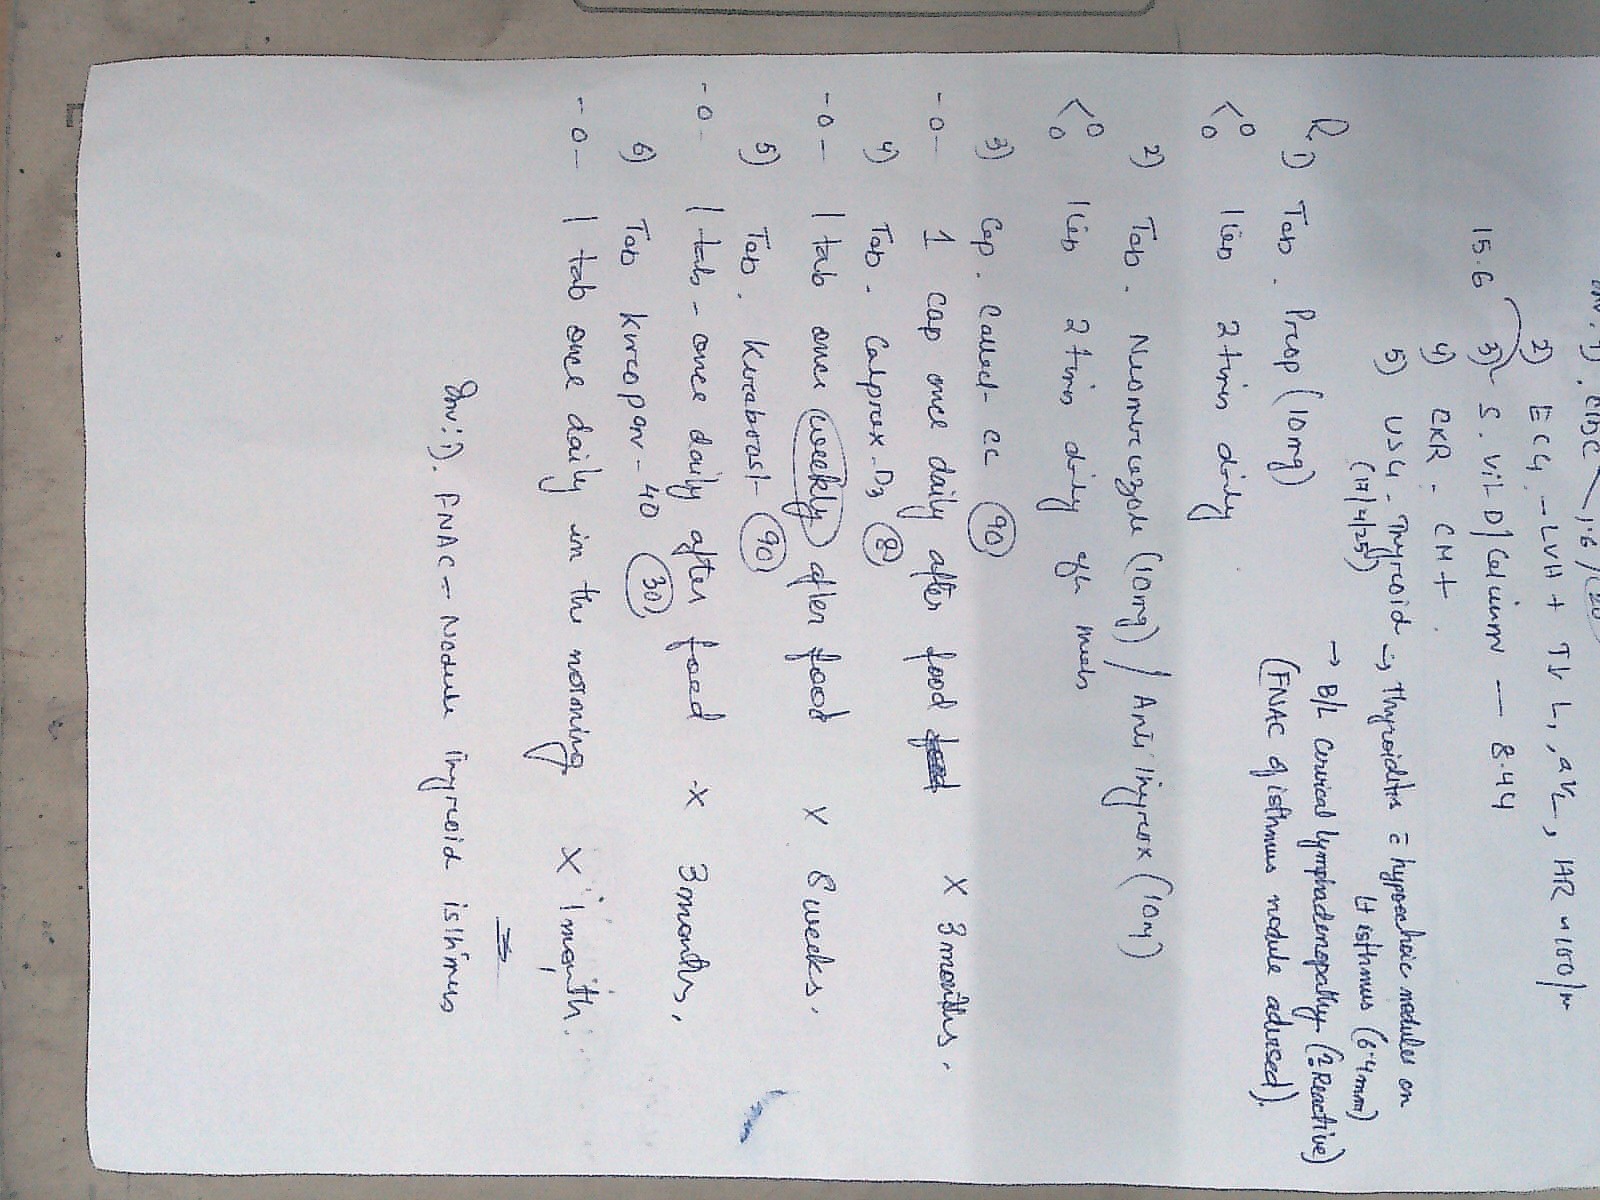 2) ECG - LVH + TV L1, aVL, HR ~ 100/m
15.6 3) S. Vit D / Calcium — 8.44
4) CXR - CM+
5) USG - Thyroid → Thyroiditis c̄ hypoechoic nodules on
(17/4/25) Lt isthmus (6.4mm)
→ B/L Cervical lymphadenopathy (? Reactive)
(FNAC of isthmus nodule advised).
R 1) Tab. Prop (10mg)
1 tab 2 times daily
2) Tab. Neomercazole (10mg) / Anti Thyrox (10mg)
1 tab 2 times daily meals
3) Cap. CC (90)
- 0 - 1 cap once daily after food x 3 months.
4) Tab. Calprex-D3 (8)
- 0 - 1 tab once weekly after food x 8 weeks.
5) Tab. (90)
- 0 - 1 tab - once daily after food x 3 months,
6) Tab - 40 (30)
- 0 - 1 tab once daily in the morning x 1 month.
Inv: 1). FNAC - Nodule Thyroid isthmus